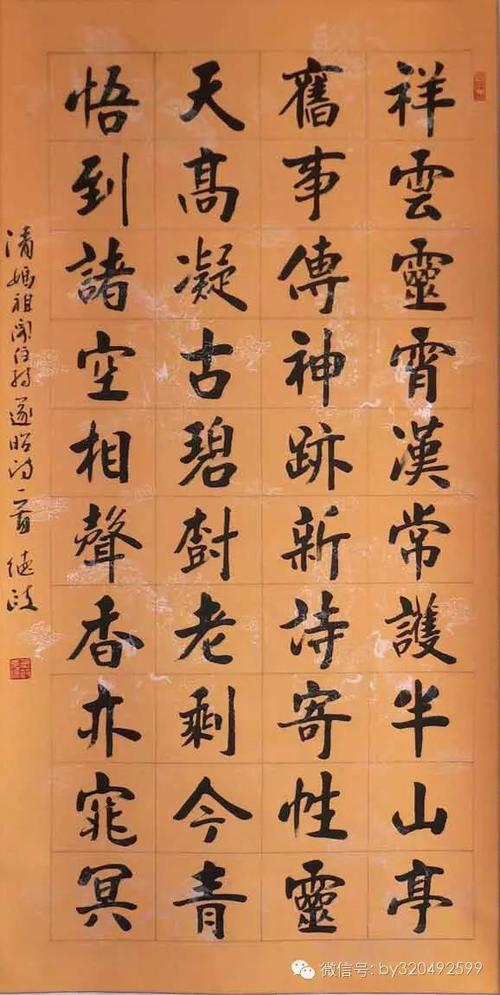 祥雲靈霄漢常護半山亭
舊事傳神跡新詩寄性靈
天高凝古碧樹老剩今青
悟到諸空相聲香亦窕冥
清媽祖閣住持遂昭詩一首 德政
微信号: by320492599